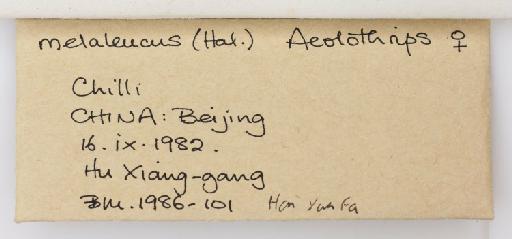 melaleucus (Hal.) Aeolothrips ♀
Chilli
CHINA: Beijing
16.ix.1982.
Hu Xiang-gang
BM.1986-101 Han Yun Fa